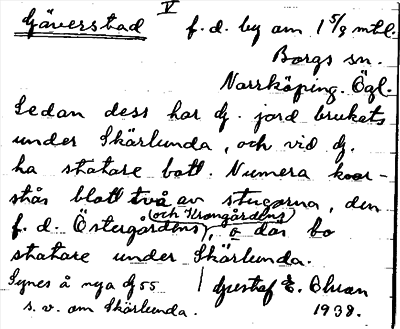 V
Gäverstad f. d. by om 1 5/8 mtl.
Borgs sn.
Norrköping. Ögl.
Sedan dess har Gj. jord brukats
under Skärlunda, och vid Gj.
ha statare bott. Numera kvar-
står blott två av stugorna, den
(och Krongårdens)
f. d. Östergårdens, o där bo
statare under Skärlunda.
Synes å nya G 55 Gustaf E. Bluan
s. v. om Skärlunda. 1938.